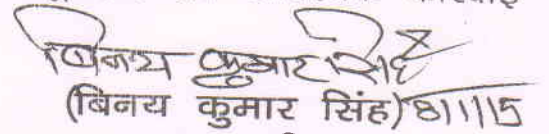 बिनय कुमार सिंह
(बिनय कुमार सिंह) 8/1/15